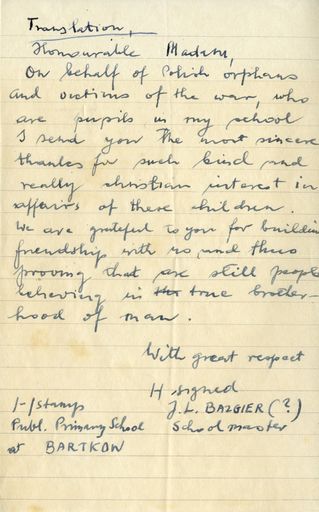 Translation,
Honourable Madam,
On behalf of Polish orphans
and victims of the war, who
are pupils in my school
I send you the most sincere
thanks for such kind and
really christian interest in
affairs of these children.
We are grateful to you for buildin
friendship with us, and thus
proving that are still people
believing in the true brother-
hood of man.
With great respect
signed
/-/ stamps J. L. BAZGIER (?)
Publ. Primary School Schoolmaster
at BARTKOW